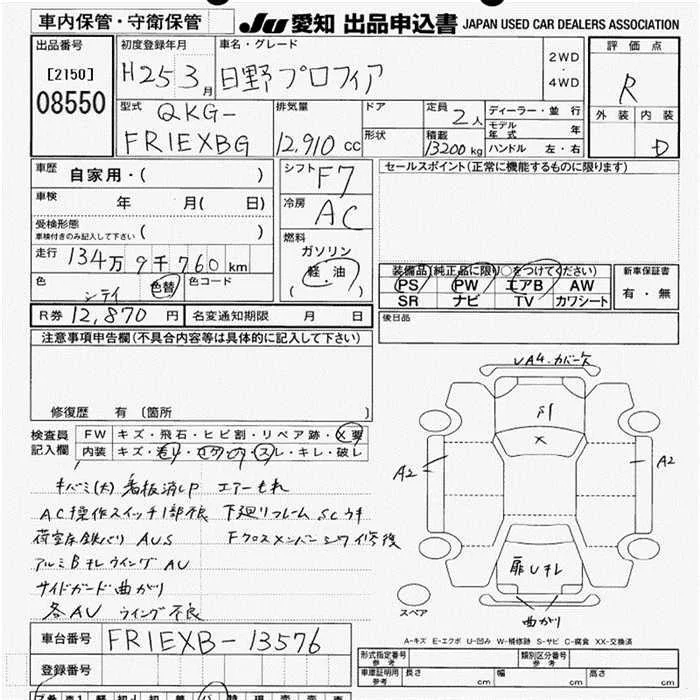 車内保管・守衛保管
JU 愛知 出品申込書 JAPAN USED CAR DEALERS ASSOCIATION
出品番号
[2150]
08550
初度登録年月
H25 3月
車名・グレード
日野プロフィア
2WD
・
4WD
評価点
R
外装 内装
D
型式
QKG-
FR1EXBG
排気量
12,910 cc
ドア
形状
定員
2人
積載
13200 kg
ディーラー・並行
モデル年式 年
ハンドル 左・右
車歴
自家用・( )
車検
年 月( 日)
受検形態
車検付きのみ記入して下さい ( )
走行 134万9千760km
色 シテイ 色替 色コード
シフト F7
冷房 AC
燃料
ガソリン
軽・油
( )
セールスポイント(正常に機能するものに限ります)
装備品(純正品に限り○をつけてください)
PS PW エアB AW
SR ナビ TV カワシート
新車保証書
有・無
R券 12,870 円 名変通知期限 月 日
後日品
注意事項申告欄(不具合内容等は具体的に記入して下さい)
修復歴 有 [箇所 ]
検査員
記入欄
FW キズ・飛石・ヒビ割・リペア跡・X要
内装 キズ・汚レ・コゲ・穴・スレ・キレ・破レ
キバミ(大) 看板消しP エアーもれ
AC操作スイッチ1部不良 下廻りフレームSCウキ
荷室床鉄バリ AUS Fクロスメンバーシワイ修復
アルミBキレウイングAU
サイドガード曲がり
各AU ウイング不良
A2
A2
S1
X
扉Uキレ
曲がり
スペア
A-キズ E-エクボ U-凹み W-補修跡 S-サビ C-腐食 XX-交換済
車台番号 FR1EXB-13576
登録番号
形式指定番号
参考
類別区分番号
参考
車庫証明用
参考
長さ cm 幅 cm 高さ cm